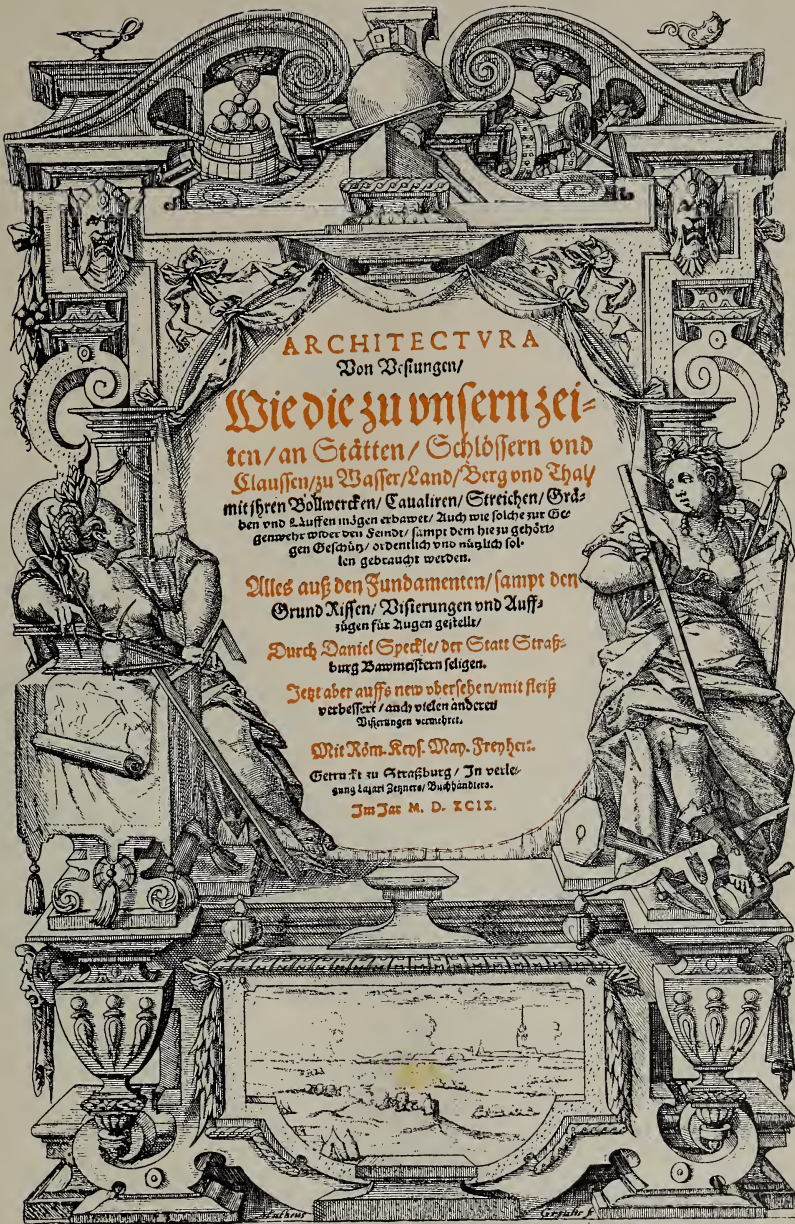 ARCHITECTVRA
Von Vestungen/
Wie die zu vnsern zei-
ten/ an Stätten/ Schlössern vnd
Claussen/ zu Wasser/ Land/ Berg vnd Thal/
mit jhren Bollwercken/ Caualiren/ Streichen/ Grä-
ben vnd Läuffen mögen erbawet/ Auch wie solche zur Ge-
genwehr wider den Feindt/ sampt dem hiezu gehöri-
gen Geschütz/ ordentlich vnd nützlich sol-
len gebraucht werden.
Alles auß den Fundamenten/ sampt den
Grund Rissen/ Visierungen vnd Auff-
zügen für Augen gestellt/
Durch Daniel Speckle/ der Statt Straß-
burg Bawmeistern seligen.
Jetzt aber auffs new vbersehen/ mit fleiß
verbessert/ auch vielen anderen
Visierungen vermehret.
Mit Röm. Keys. May. Freyheit.
Getruckt zu Straßburg/ In verle-
gung Lazari Zetzners/ Buchhändlers.
Im Jar M. D. XCIX.